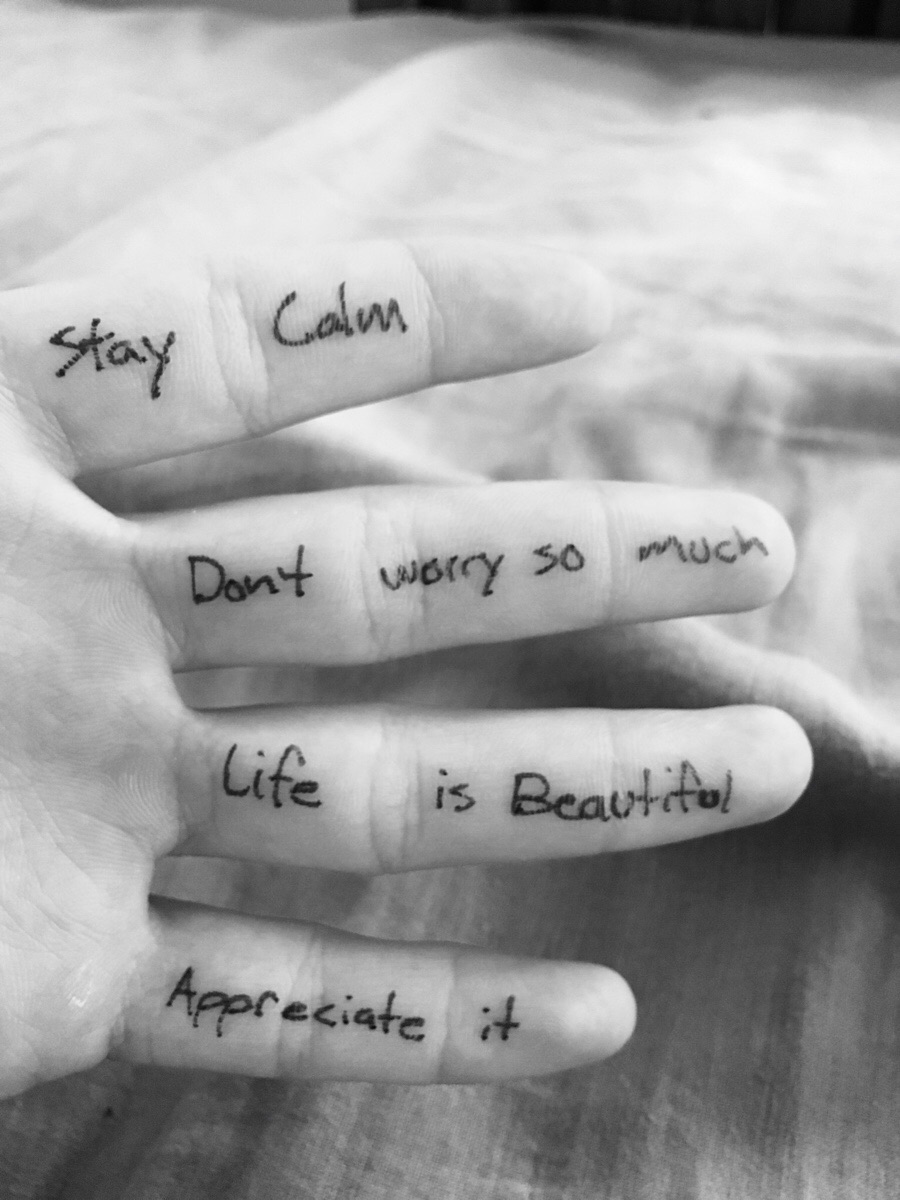 Stay Calm
Dont worry so much
Life is Beautiful
Appreciate it